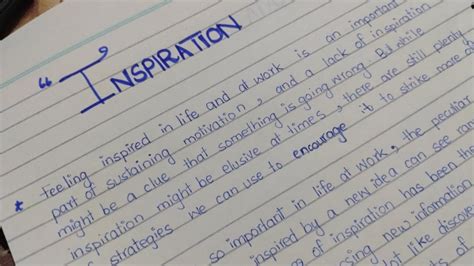 “INSPIRATION”
* feeling inspired in life and at work is an important
part of sustaining motivation, and a lack of inspiration
might be a clue that something is going wrong. But while
inspiration might be elusive at times, there are still plenty
strategies we can use to encourage it to strike more of
so important in life at work, the peculiar
inspired by a new idea can see an
of inspiration has been the
sing new information
ot like disco
ts of